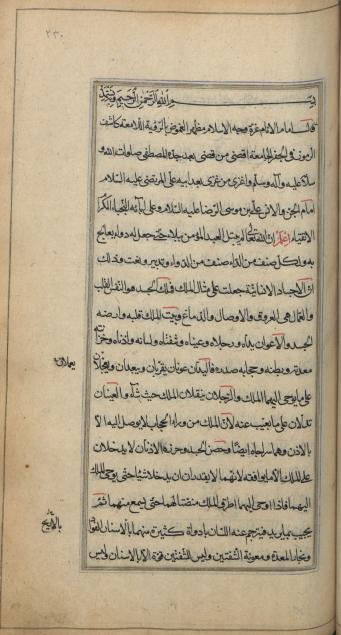 ٢٣٠
بسم الله الرحمن الرحيم وبه نستعين
قال امام الانام غرة وجه الاسلام مظهر الغموض بالروية اللامعة كاشف
الرموز في الجفر الجامعة اقضى من قضى بعد جده المصطفى صلوات الله و
سلامه عليه وآله وسلم واغزى من غزى بعد ابيه علي المرتضى عليه السلام
امام الجن والانس علي بن موسى الرضا عليه السلام وعلى آبائه النجباء الكرام
الاتقياء اعلم ان الله تعالى لم يبتل العبد المؤمن ببلاء حتى جعل له دواء يعالج
به ولكل صنف من الداء صنف من الدواء وتدبير ونعت وذلك
ان الاجساد الانسانية جعلت على مثال الملك فملك الجسد هو القلب
والعمال هي العروق والاوصال والدماغ وبيت الملك قلبه وارضه
الجسد والاعوان يداه ورجلاه وعيناه وشفتاه ولسانه واذناه وخزانته
معدته وبطنه وحجابه صدره فاليدان عونان يقربان ويبعدان ويعملان
يعملان
على ما يوحي اليهما الملك والرجلان ينقلان الملك حيث شاء والعينان
تدلان على ما يغيب عنه لان الملك من وراء الحجاب لا يوصل اليه الا
بالاذن وهما سراجاه ايضا وحصن الجسد وحرزه الاذنان لا يدخلان
على الملك الا ما يوافقه لانهما لا يقدران ان يدخلا شيئا حتى يوحي الملك
اليهما فاذا اوحى اليهما اطرق الملك منصتا لهما حتى يسمع منهما ثم
يجيب بما يريد فيترجم عنه اللسان بادوات كثيرة منها
وبخار المعدة ومعونة الشفتين وليس للشفتين قوة الا بالاسنان وليس